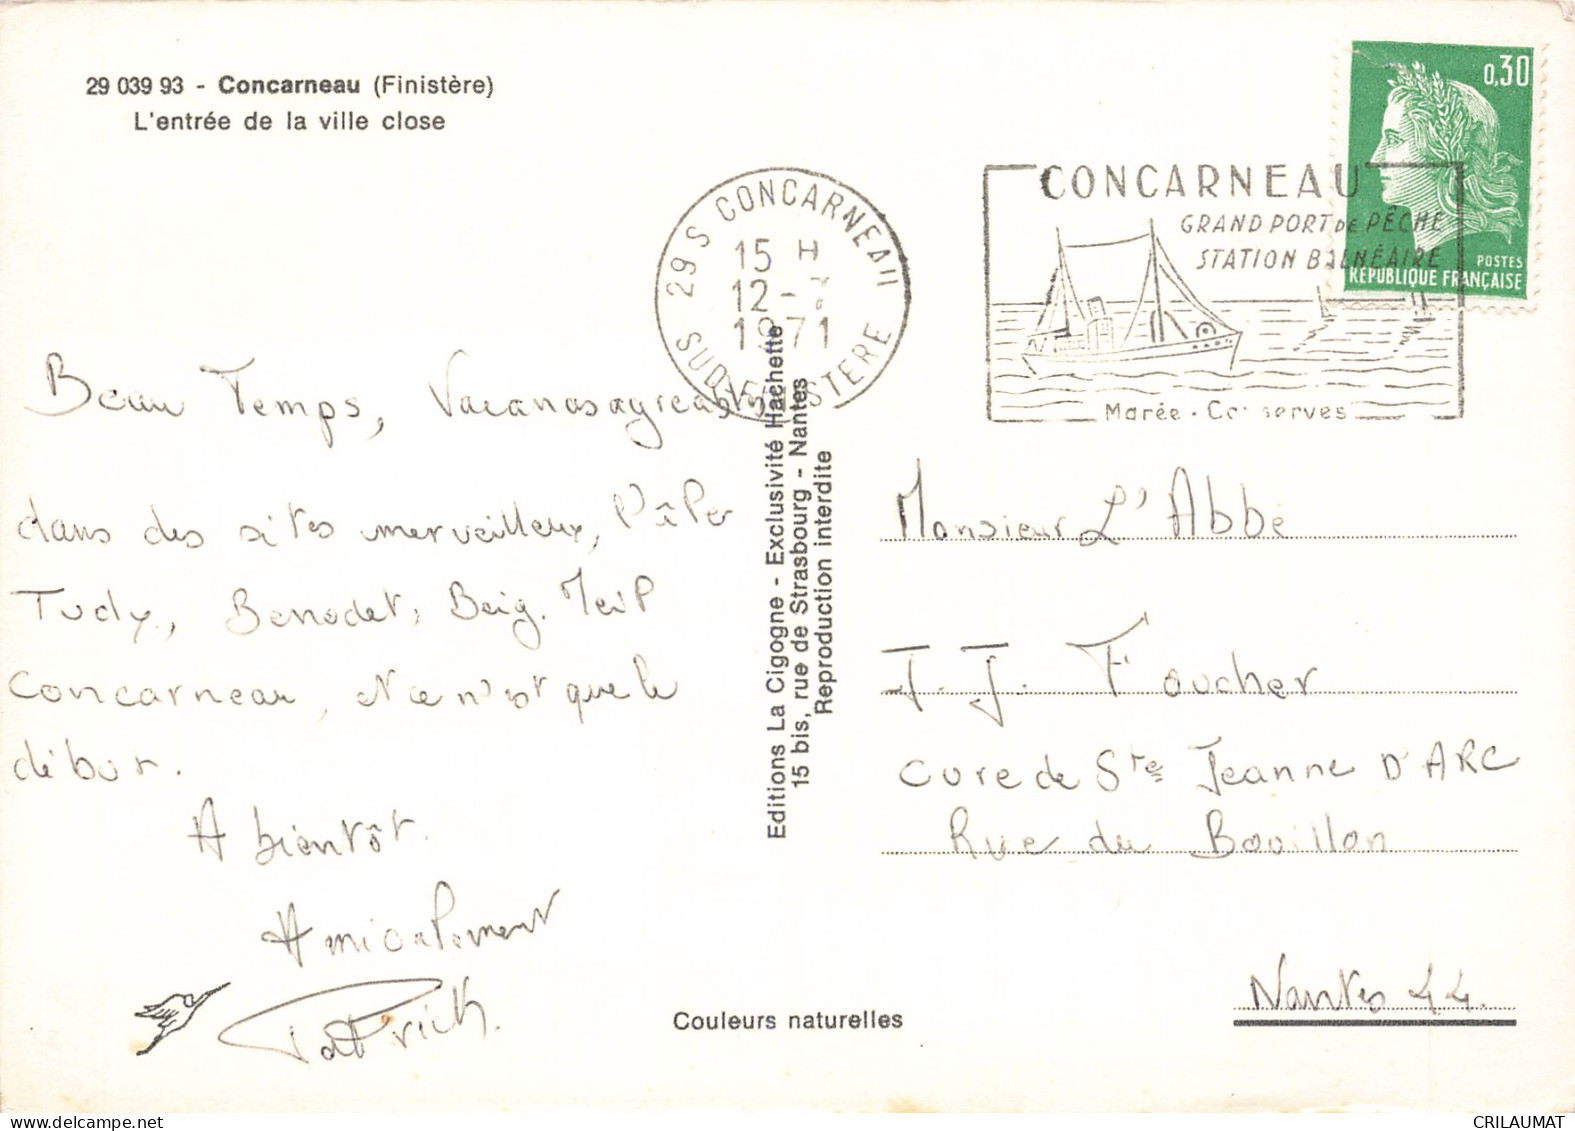 29 039 93 - Concarneau (Finistère)
L'entrée de la ville close
0,30
POSTES
RÉPUBLIQUE FRANÇAISE
29 S CONCARNEAU
15 H
12 -
1971
SUD FINISTERE
CONCARNEAU
GRAND PORT DE PÊCHE
STATION BALNÉAIRE
Marée - Conserves
Beau Temps,
dans des sites merveilleux,
Tudy, Benodet, Beig. Meil
Concarneau, Ce n'est que le
début.
A bientôt.
Amicalement
Patrick.
Editions La Cigogne - Exclusivité Hachette
15 bis, rue de Strasbourg - Nantes
Reproduction interdite
Couleurs naturelles
Monsieur L'Abbé
J. J. Foucher
Cure de Ste Jeanne D'ARC
Rue du Bouillon
Nantes 44.
CRILAUMAT